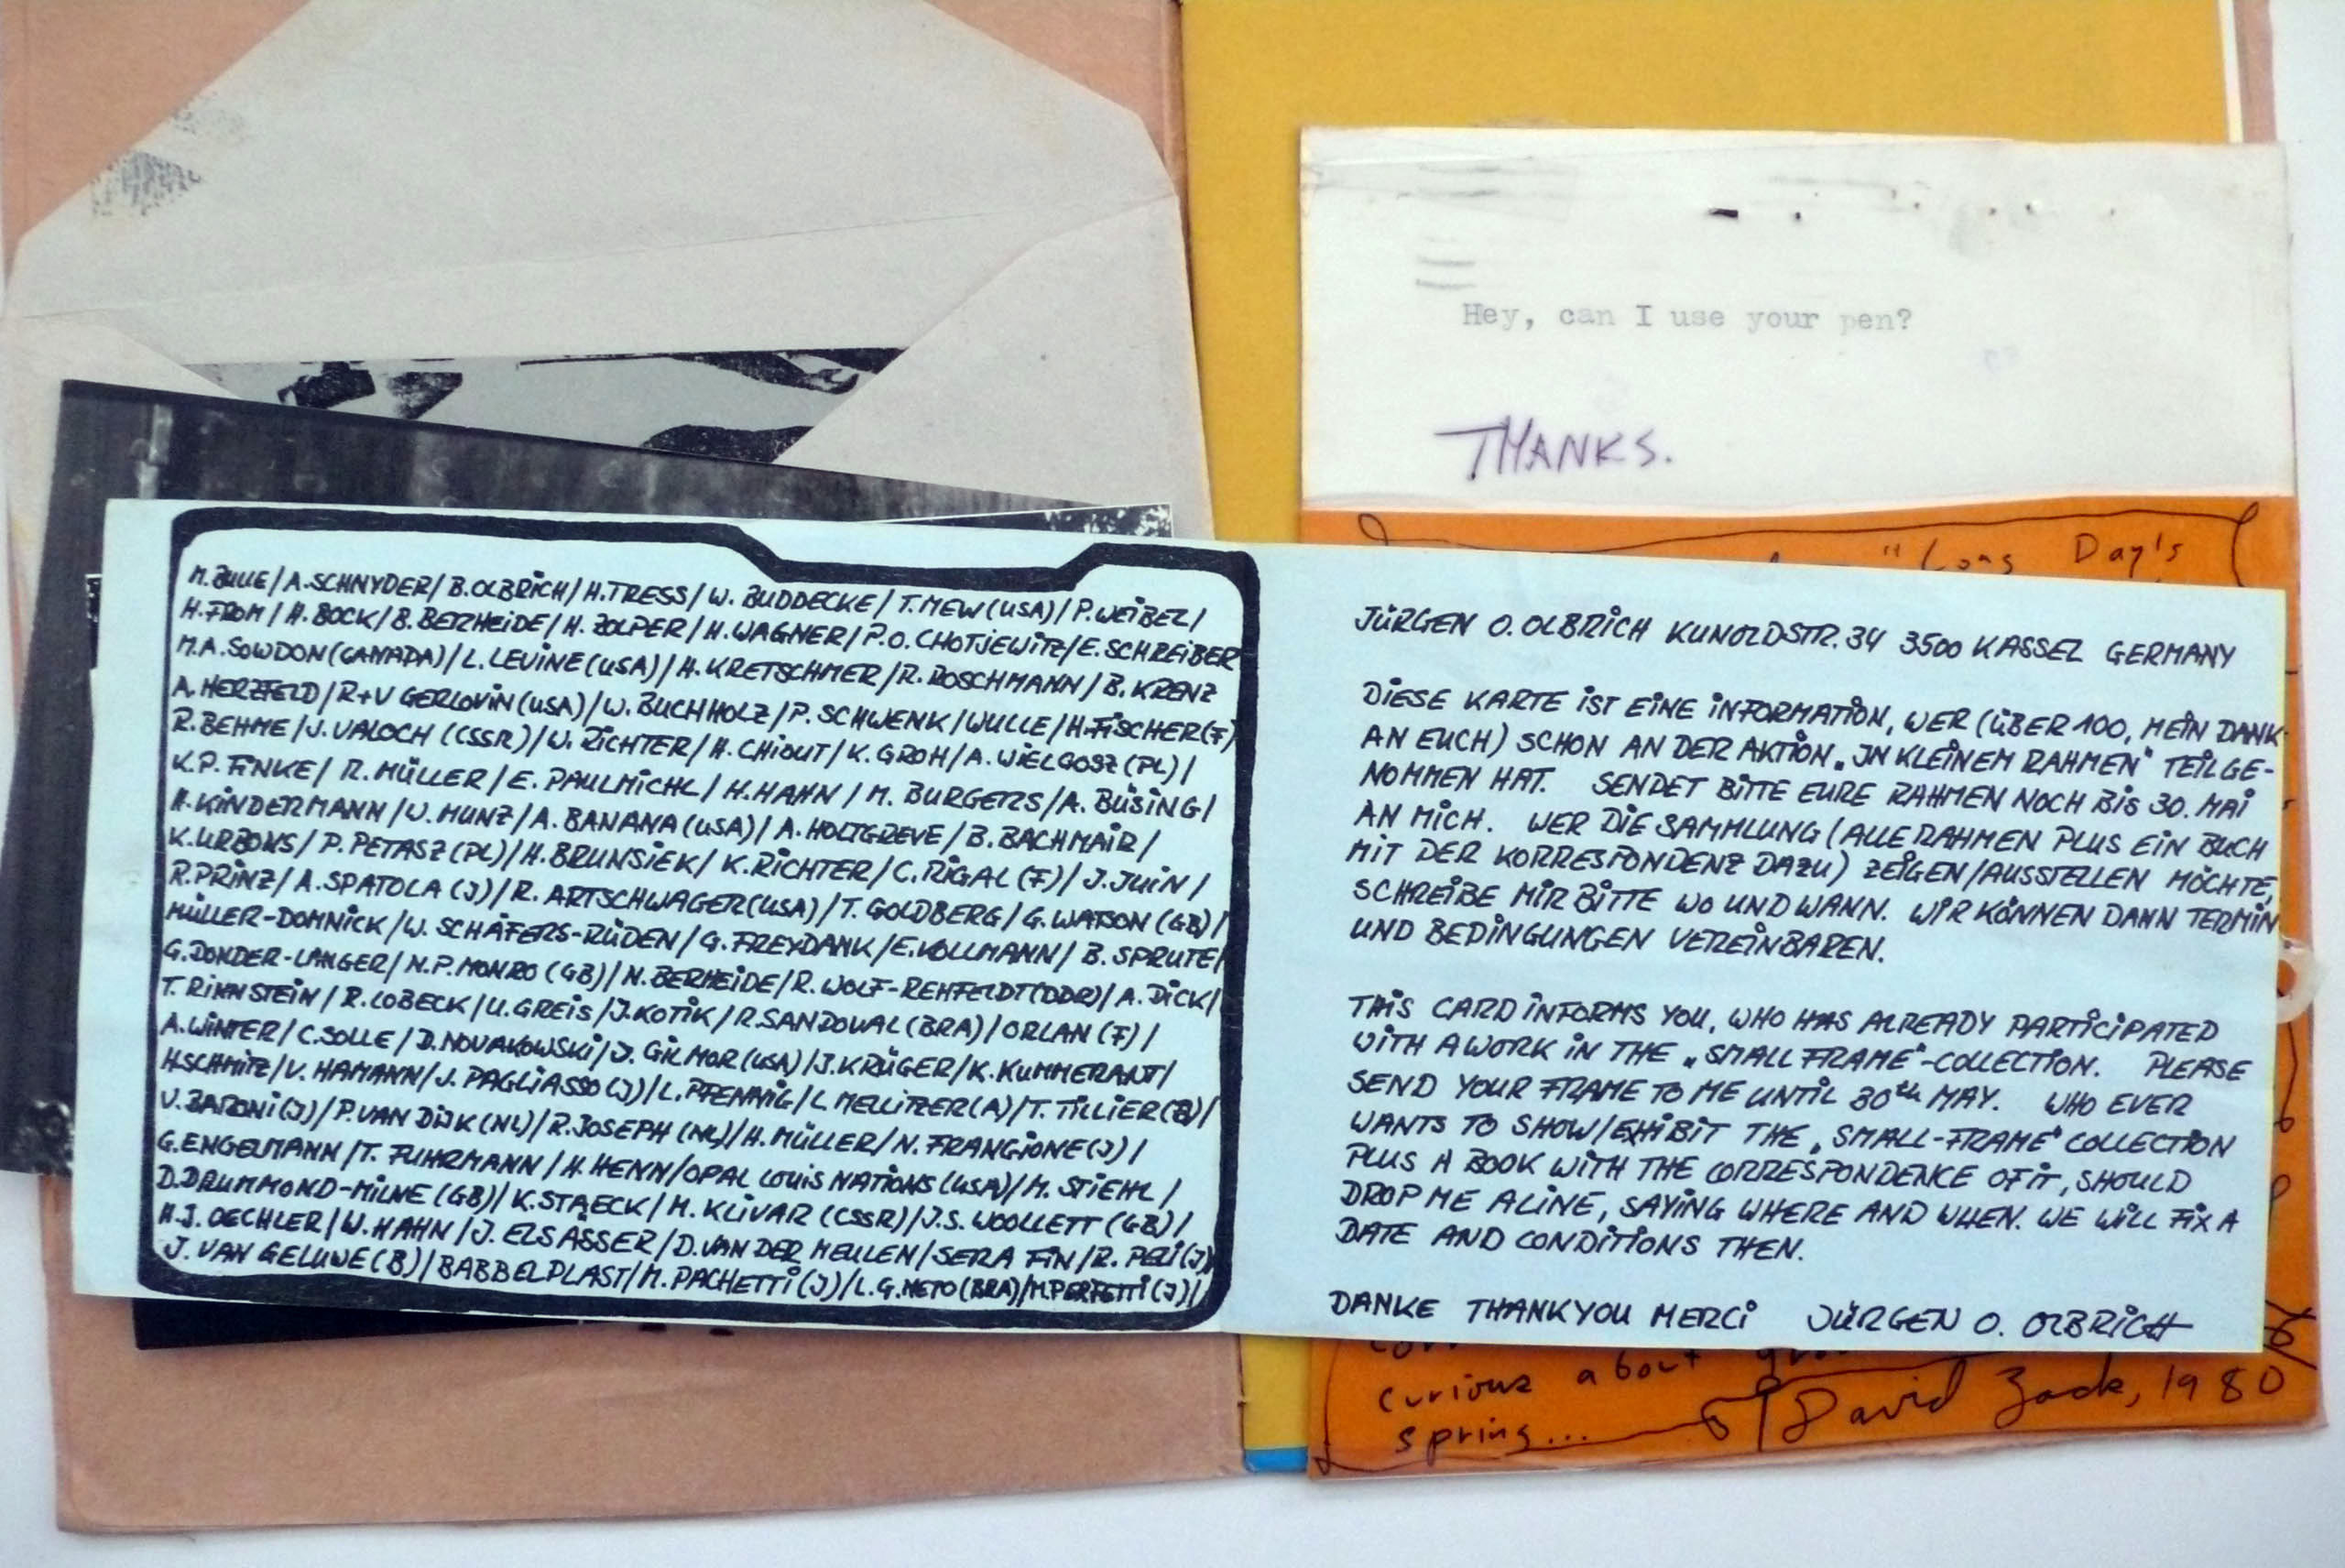 Hey, can I use your pen?
THANKS.
"Long Day's
M. ZULLE / A. SCHNYDER / B. OLBRICH / H. TRESS / W. BUDDECKE / T. MEW (USA) / P. WEIBEL /
H. FROM / H. BOCK / B. BERHEIDE / H. ZOLPER / H. WAGNER / P.O. CHOTJEWITZ / E. SCHREIBER
M.A. SOWDON (CANADA) / L. LEVINE (USA) / H. KRETSCHMER / R. ROSCHMANN / B. KRENZ
A. HERZFELD / R+V GERLOVIN (USA) / W. BUCHHOLZ / P. SCHWENK / WULLE / H. FISCHER (F)
R. BEHME / J. VALOCH (CSSR) / W. RICHTER / H. CHIOUT / K. GROH / A. WIELGOSZ (PL) /
K.P. FINKE / R. MÜLLER / E. PAULMICHL / H. HAHN / M. BURGERS / A. BÜSING /
H. KINDERMANN / U. MUNZ / A. BANANA (USA) / A. HOLTGREVE / B. BACHMAIR /
K. URBONS / P. PETASZ (PL) / H. BRUNSIEK / K. RICHTER / C. RIGAL (F) / J. JUIN /
R. PRINZ / A. SPATOLA (J) / R. ARTSCHWAGER (USA) / T. GOLDBERG / G. WATSON (GB) /
MÜLLER-DOMNICK / W. SCHÄFERS-RÜDEN / G. FREYDANK / E. VOLLMANN / B. SPRUTE /
G. DONDER-LANGER / N.P. MONRO (GB) / N. BERHEIDE / R. WOLF-REHFELDT (DDR) / A. DICK /
T. RINNSTEIN / R. LOBECK / U. GREIS / J. KOTIK / R. SANDOVAL (BRA) / ORLAN (F) /
A. WINTER / C. SOLLE / D. NOVAKOWSKI / J. GILMOR (USA) / J. KRÜGER / K. KUMMERANT /
H. SCHMITZ / V. HAMANN / J. PAGLIASSO (J) / L. PFENNIG / L. MELLITZER (A) / T. TILLIER (B) /
V. BARONI (J) / P. VAN DIJK (NL) / R. JOSEPH (NL) / H. MÜLLER / N. FRANGIONE (J) /
G. ENGELMANN / T. FUHRMANN / H. HENN / OPAL LOUIS NATIONS (USA) / M. STIEHL /
D. DRUMMOND-MILNE (GB) / K. STAECK / M. KLIVAR (CSSR) / J.S. WOOLLETT (GB) /
H.J. OECHLER / W. HAHN / J. ELSÄSSER / D. VAN DER MEULEN / SERA FIN / R. PELI (J)
J. VAN GELUWE (B) / BABBELPLAST / M. PACHETTI (J) / L.G. NETO (BRA) / M. PERFETTI (J) /
JÜRGEN O. OLBRICH KUNOLDSTR. 34 3500 KASSEL GERMANY
DIESE KARTE IST EINE INFORMATION, WER (ÜBER 100, MEIN DANK
AN EUCH) SCHON AN DER AKTION „IN KLEINEM RAHMEN" TEILGE-
NOMMEN HAT. SENDET BITTE EURE RAHMEN NOCH BIS 30. MAI
AN MICH. WER DIE SAMMLUNG (ALLE RAHMEN PLUS EIN BUCH
MIT DER KORRESPONDENZ DAZU) ZEIGEN/AUSSTELLEN MÖCHTE,
SCHREIBE MIR BITTE WO UND WANN. WIR KÖNNEN DANN TERMIN
UND BEDINGUNGEN VEREINBAREN.
THIS CARD INFORMS YOU, WHO HAS ALREADY PARTICIPATED
WITH A WORK IN THE „SMALL FRAME"-COLLECTION. PLEASE
SEND YOUR FRAME TO ME UNTIL 30th MAY. WHO EVER
WANTS TO SHOW/EXHIBIT THE „SMALL-FRAME" COLLECTION
PLUS A BOOK WITH THE CORRESPONDENCE OF IT, SHOULD
DROP ME A LINE, SAYING WHERE AND WHEN. WE WILL FIX A
DATE AND CONDITIONS THEN.
DANKE THANKYOU MERCI JÜRGEN O. OLBRICH
curious about
spring... David Zack, 1980